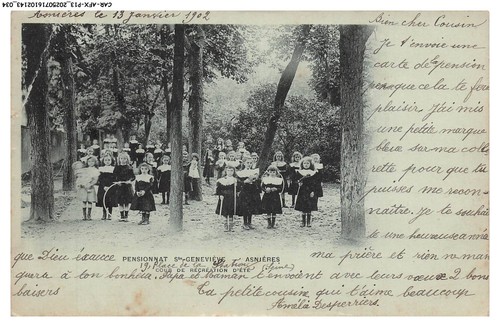 CAR-AFX-P13_20250716102143_034
Asnières le 13 Janvier 1902
Bien cher Cousin
je t'envoie une
carte de pension
pensque cela te fera
plaisir j'ai mis
une petite marque
bleue sur ma colle
rette pour que tu
puisses me recon-
naître. Je te souhaite
une heureuse année
que Dieu exauce ma prière et rien ne man
PENSIONNAT Ste-GENEVIÈVE ASNIÈRES
19, Place de la Station (Seine)
COUR DE RÉCRÉATION D'ÉTÉ
quera à ton bonheur. Papa et Maman t'envoient avec leurs vœux 2 bons
baisers Ta petite cousine qui t'aime beaucoup
Amélie Desperriers.